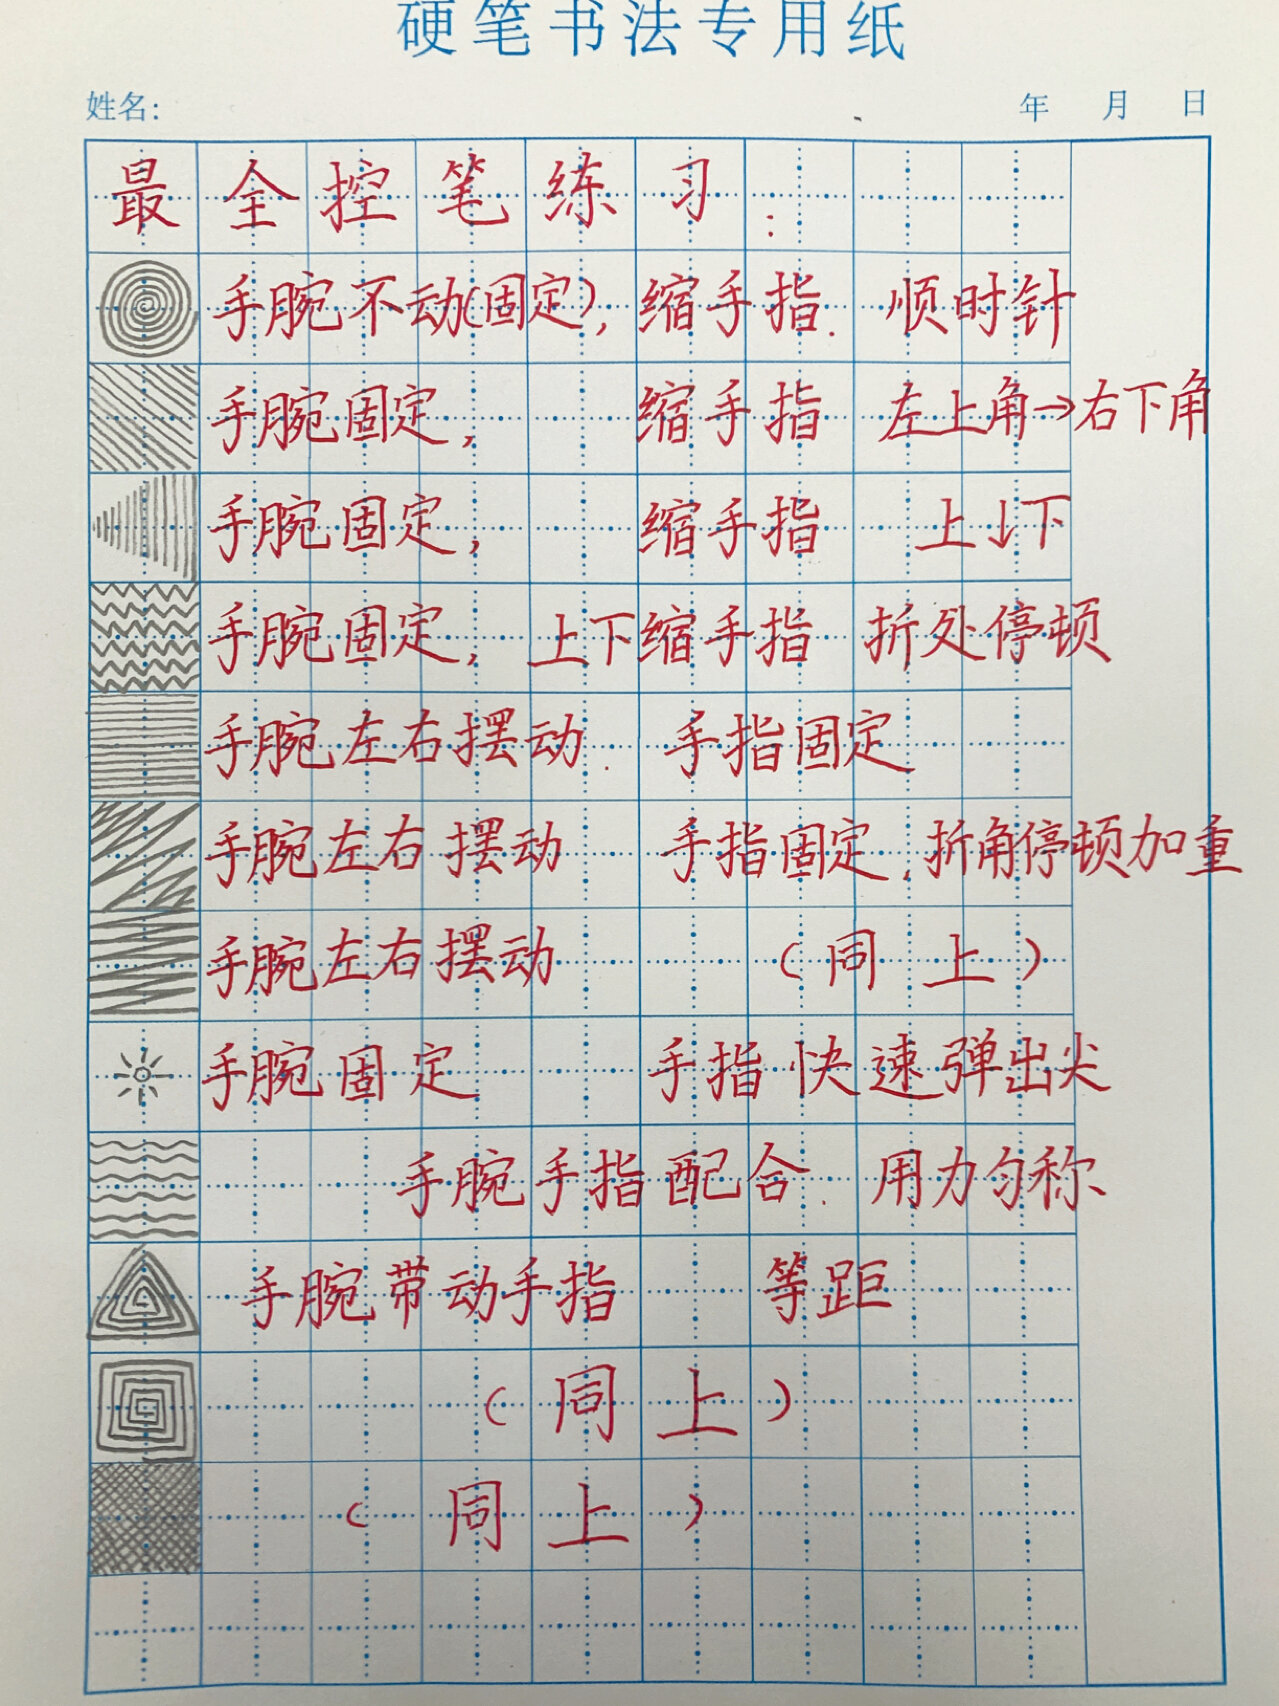 硬笔书法专用纸
姓名: 年 月 日
最全控笔练习:
手腕不动(固定),缩手指.顺时针
手腕固定, 缩手指 左上角→右下角
手腕固定, 缩手指 上↓下
手腕固定, 上下缩手指 折处停顿
手腕左右摆动. 手指固定
手腕左右摆动 手指固定.折角停顿加重
手腕左右摆动 (同上)
手腕固定 手指快速弹出尖
手腕手指配合.用力匀称
手腕带动手指 等距
(同上)
(同上)